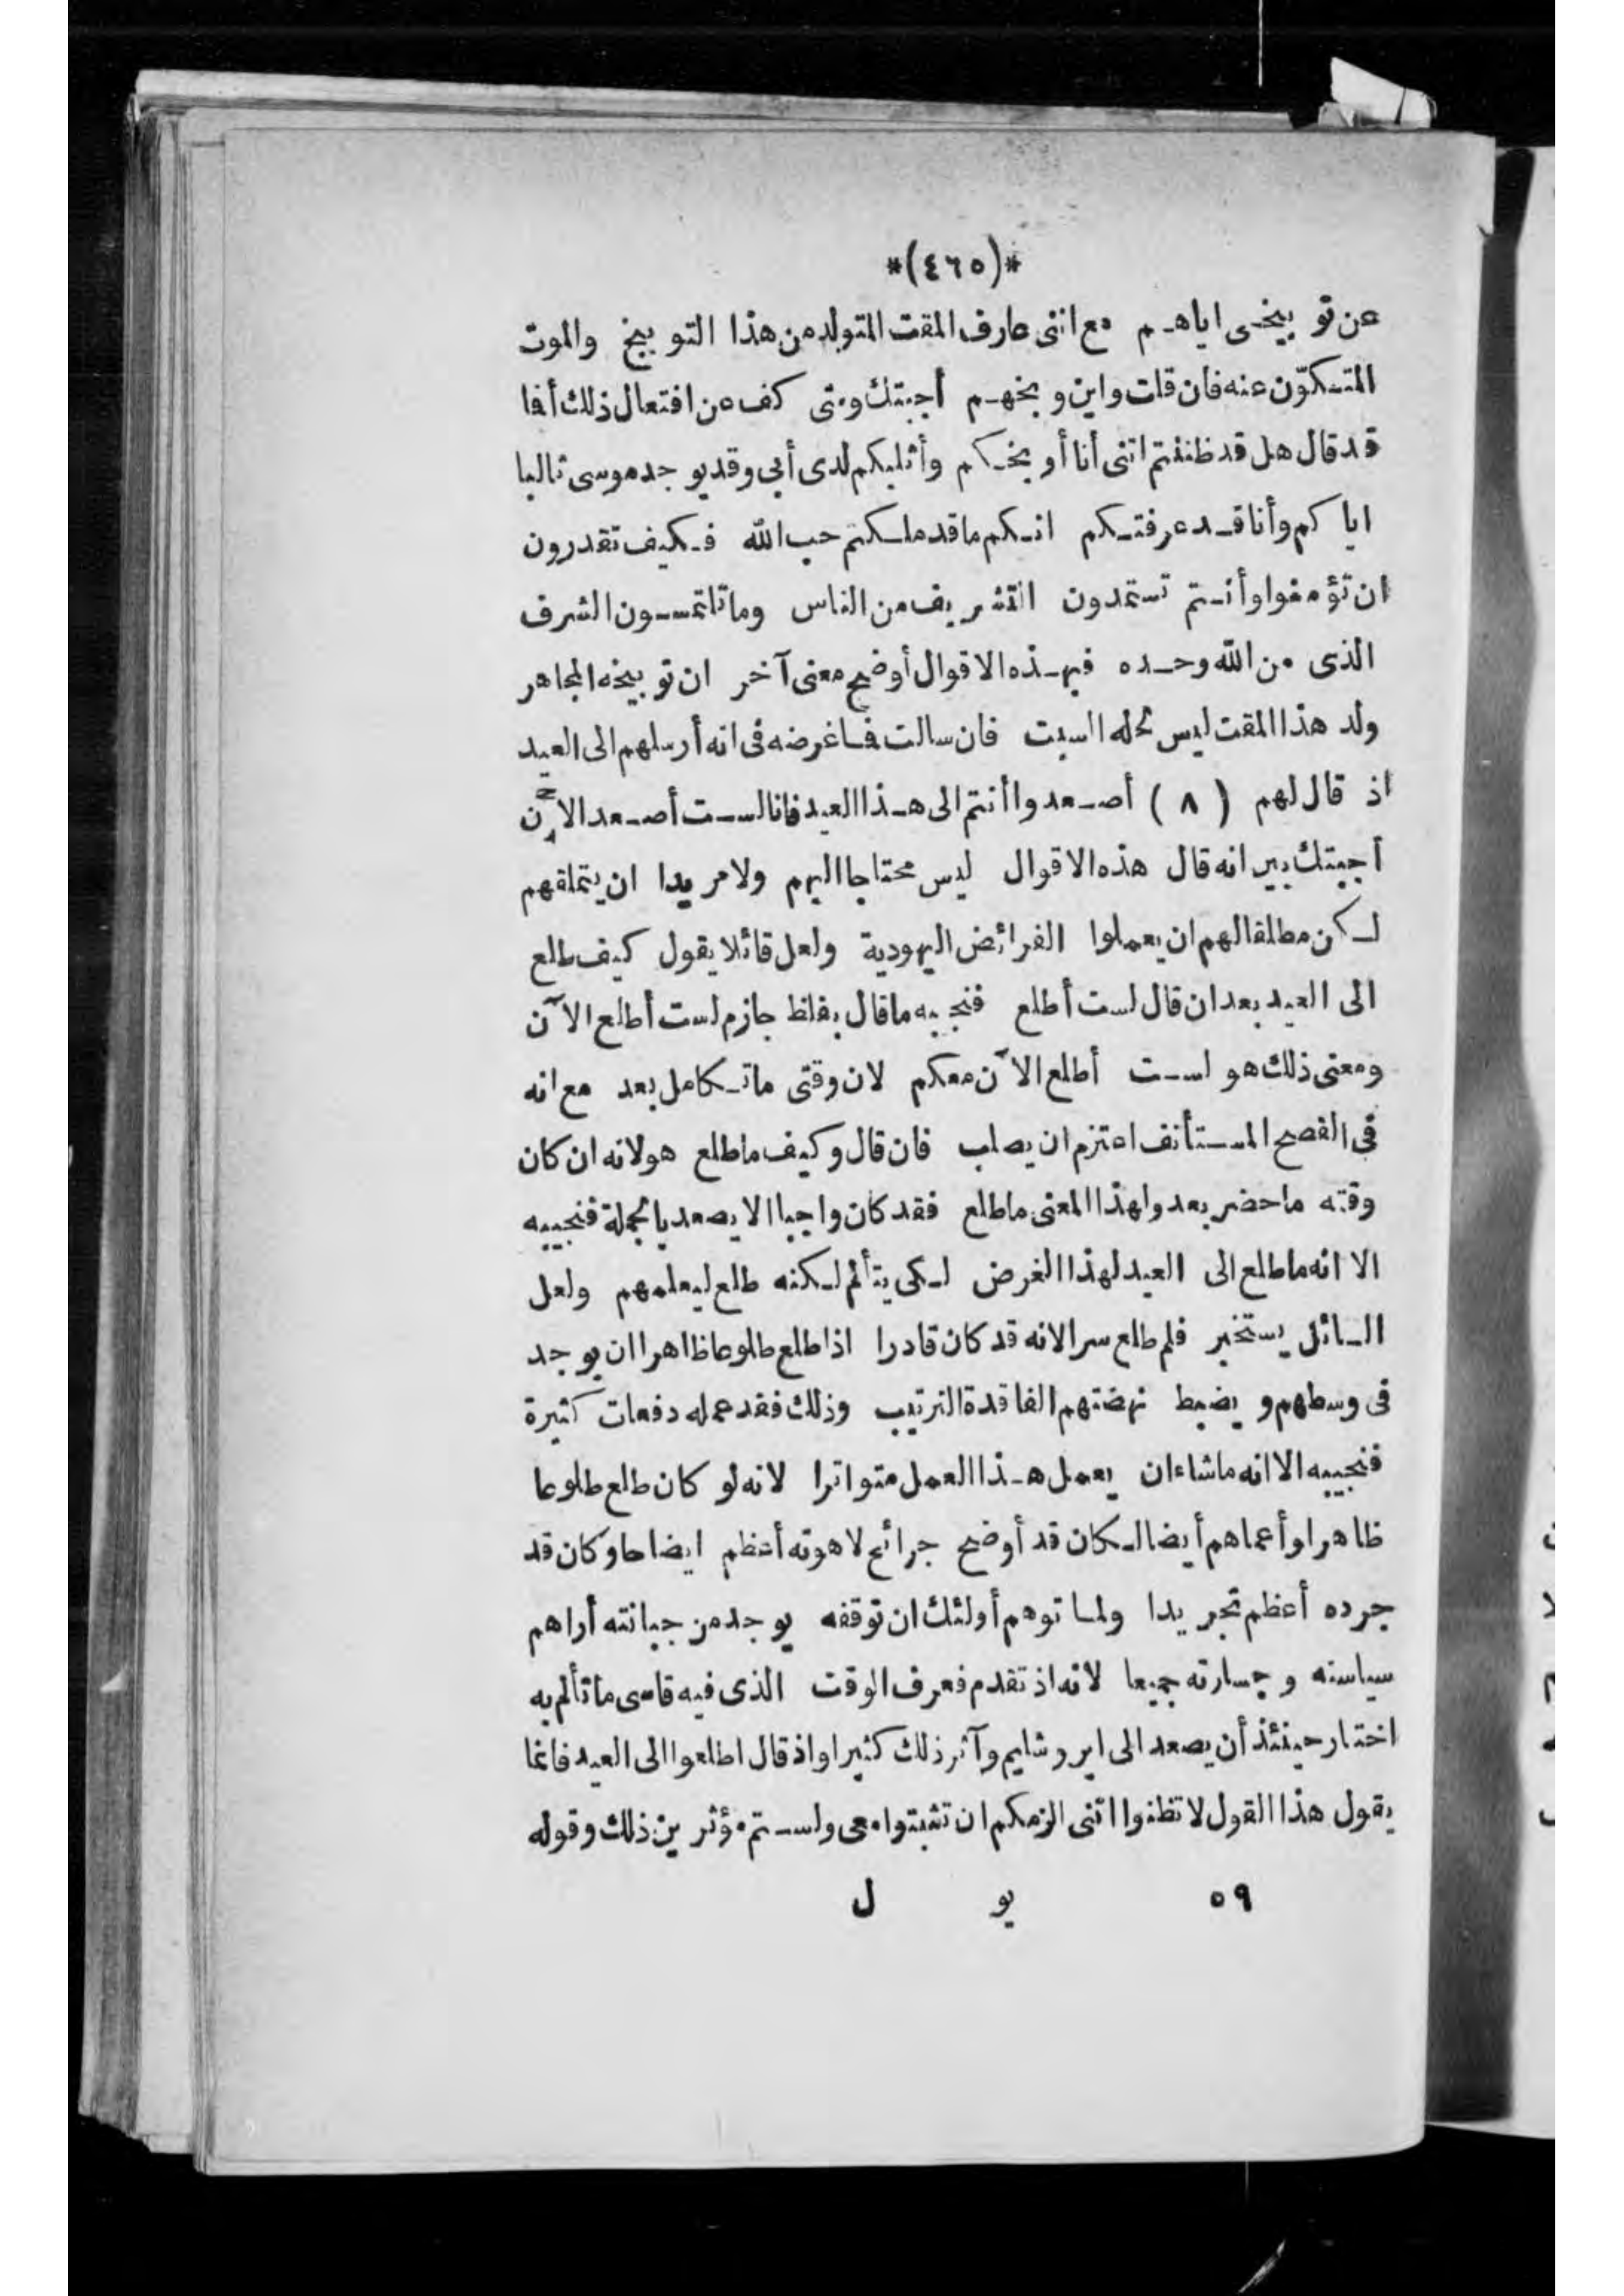 *(٤٦٥)*
عن توبيخى اياهم مع اننى عارف المقت المتولد من هذا التوبيخ والموت
المتكوّن عنه فان قلت واين وبخهم أجبتك ومتى كف عن افتعال ذلك أفما
قد قال هل قد ظننتم اننى أنا أوبخكم وأثلبكم لدى أبى وقد يوجد موسى ثالبا
اياكم وأنا قد عرفتكم انكم ما قد ملكتم حب الله فكيف تقدرون
ان تؤمنوا وأنتم تستمدون التشريف من الناس وما تلتمسون الشرف
الذى من الله وحده فبهذه الاقوال أوضح معنى آخر ان توبيخه المجاهر
ولد هذا المقت ليس لحله السبت فان سالت فما غرضه فى انه أرسلهم الى العيد
اذ قال لهم (٨) أصعدوا أنتم الى هذا العيد فانا لست أصعد الآن
أجبتك يبير انه قال هذه الاقوال ليس محتاجا اليهم ولا مريدا ان يتملقهم
لكن مطلقا لهم ان يعملوا الفرائض اليهودية ولعل قائلا يقول كيف طلع
الى العيد بعد ان قال لست أطلع فنجيبه ما قال بلفظ جازم لست أطلع الآن
ومعنى ذلك هو لست أطلع الآن معكم لان وقتى ما تكامل بعد مع انه
فى الفصح المستأنف اعتزم ان يصلب فان قال وكيف ما طلع هو لانه ان كان
وقته ما حضر بعد ولهذا المعنى ما طلع فقد كان واجبا الا يصعد بالجملة فنجيبه
الا انه ما طلع الى العيد لهذا الغرض لكى يتألم لكنه طلع ليعلمهم ولعل
السائل يستخبر فلم طلع سرا لانه قد كان قادرا اذا طلع طلوعا ظاهرا ان يوجد
فى وسطهم ويضبط نهضتهم الفاقدة الترتيب وذلك فقد عمله دفعات كثيرة
فنجيبه الا انه ما شاء ان يعمل هذا العمل متواترا لانه لو كان طلع طلوعا
ظاهرا وأعماهم أيضا لكان قد أوضح جرائح لاهوته أعظم ايضاحا وكان قد
جرده أعظم تجريدا ولما توهم أولئك ان توقفه يوجد من جبانته أراهم
سياسته وجسارته جميعا لانه اذ تقدم فعرف الوقت الذى فيه قاسى ما تألم به
اختار حينئذ أن يصعد الى ايروشليم وآثر ذلك كثيرا واذ قال اطلعوا الى العيد فانما
يقول هذا القول لا تظنوا اننى الزمكم ان تثبتوا معى ولستم مؤثرين ذلك وقوله
٥٩ يو ل